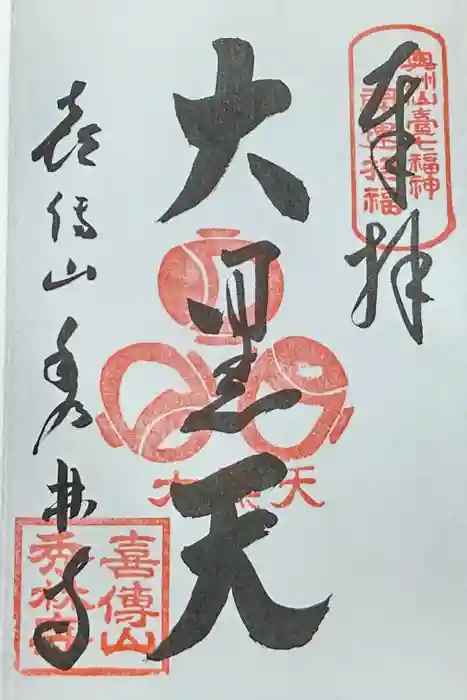 奉拝
奥州仙臺七福神
開運招福
大黒天
大黒天
喜傳山秀林寺
喜傳山
秀林寺